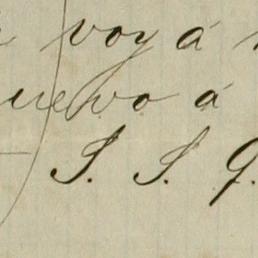 voy á
uevo á
S. S. Q.